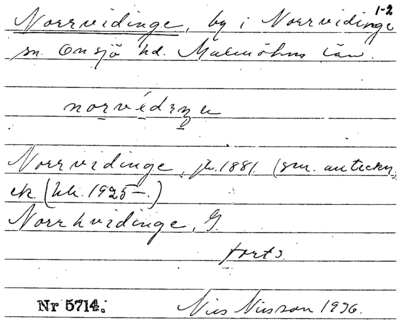 1-2
Norrvidinge, by i Norrvidinge
sn. Onsjö hd. Malmöhus län.
Norrvidinge, jb. 1881. (sm. anteckn.
ek. (bl. 1925–.)
Norrhvidinge, G.
forts.
Nr 5714.
Nils Nilsson 1936.